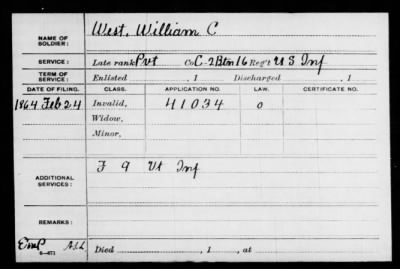 NAME OF SOLDIER: West, William C
SERVICE: Late rank Pvt Co C-2 Btn 16 Reg't U S Inf
TERM OF SERVICE: Enlisted , 1 Discharged , 1
DATE OF FILING. CLASS. APPLICATION NO. LAW. CERTIFICATE NO.
1864 Feb 24 Invalid, 41034 o
Widow,
Minor,
ADDITIONAL SERVICES: F 9 Vt Inf
REMARKS:
Died , 1 , at